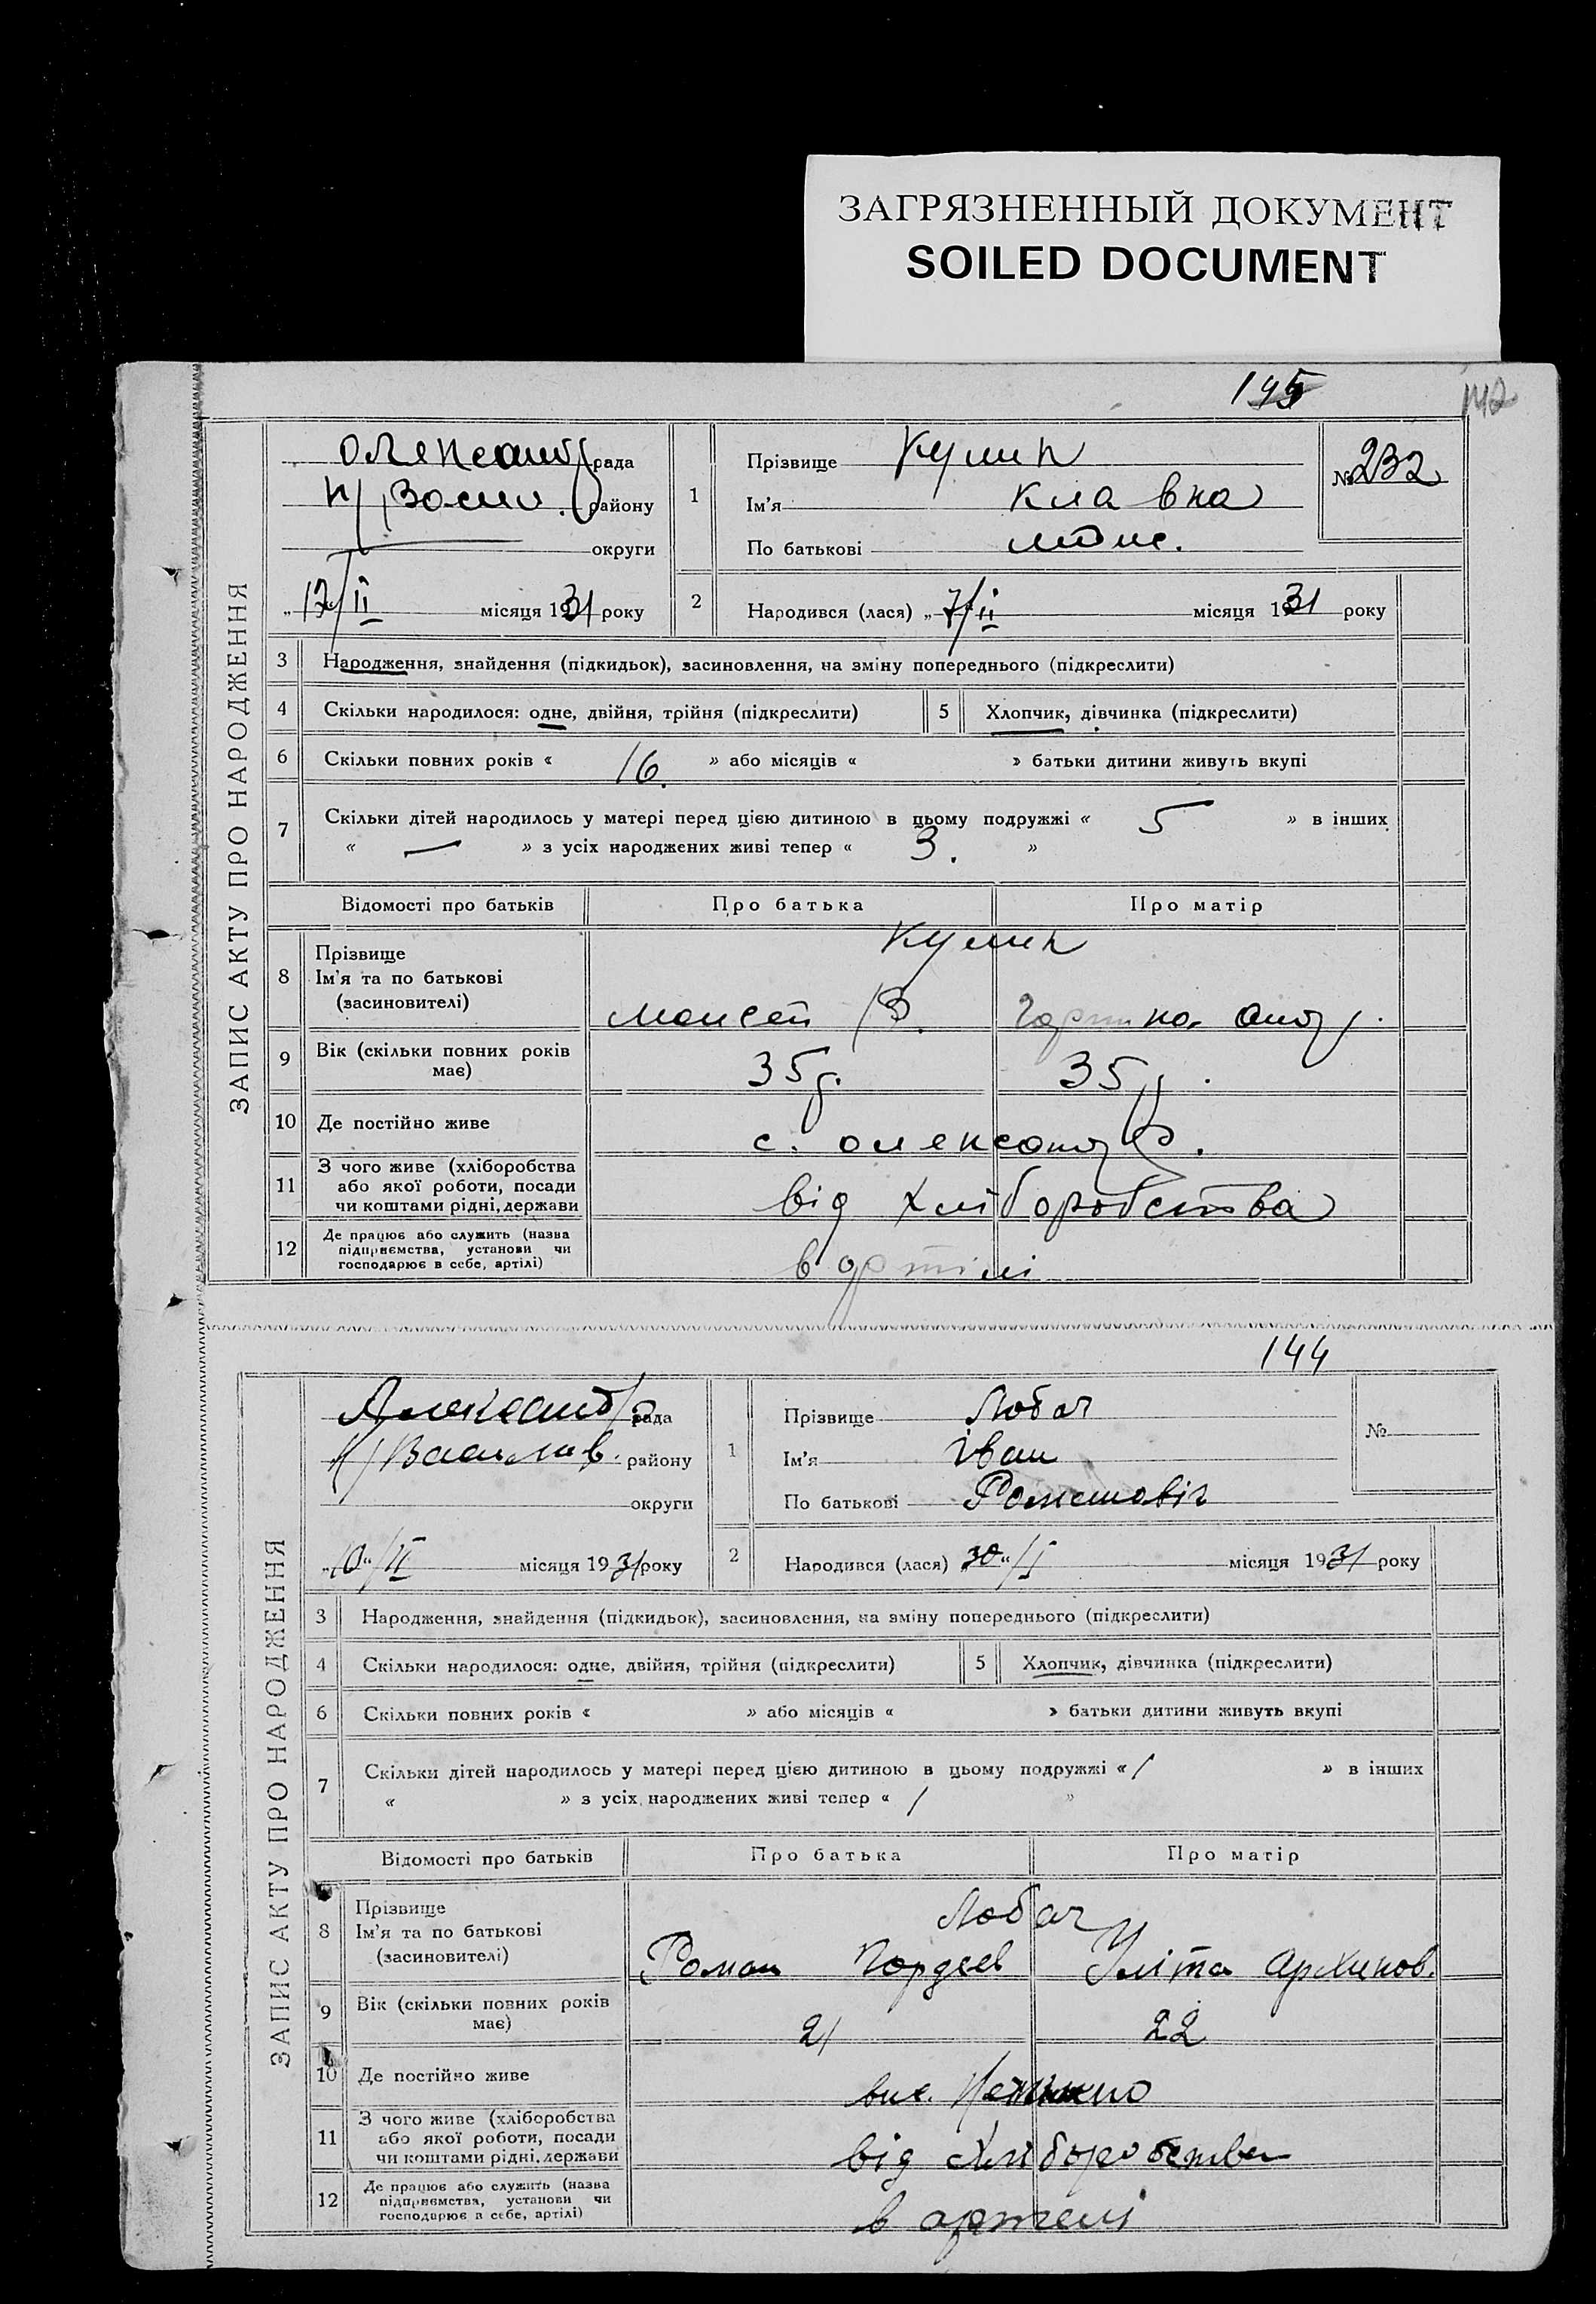 ЗАГРЯЗНЕННЫЙ ДОКУМЕНТ
SOILED DOCUMENT
142
ЗАПИС АКТУ ПРО НАРОДЖЕННЯ
Олександр рада
району
округи
„ /ІІ місяця 1931 року
1
Прізвище Кулик
Ім'я
По батькові
№ 232
2 Народився (лася) „7/ІІ місяця 1931 року
3 Народження, знайдення (підкидьок), засиновлення, на зміну попереднього (підкреслити)
4 Скільки народилося: одне, двійня, трійня (підкреслити) 5 Хлопчик, дівчинка (підкреслити)
6 Скільки повних років « 16. » або місяців « » батьки дитини живуть вкупі
7 Скільки дітей народилось у матері перед цією дитиною в цьому подружжі « 5 » в інших
« — » з усіх народжених живі тепер « 3. »
Відомості про батьків Про батька Про матір
Кулик
8 Прізвище
Ім'я та по батькові
(засновителі)
Моисей В.
9 Вік (скільки повних років має) 35 р. 35 р.
10 Де постійно живе с. Олександр.
11 З чого живе (хліборобства
або якої роботи, посади
чи коштами рідні, держави від хліборобства
12 Де працює або служить (назва
підприємства, установи чи
господарює в себе, артілі) в артілі
144
ЗАПИС АКТУ ПРО НАРОДЖЕННЯ
Александр рада
К/Василів. району
округи
„10“/ІІ місяця 1931 року
1
Прізвище Лобач
Ім'я Іван
По батькові Романовіч
№
2 Народився (лася) „30“/І місяця 1931 року
3 Народження, знайдення (підкидьок), засиновлення, на зміну попереднього (підкреслити)
4 Скільки народилося: одне, двійня, трійня (підкреслити) 5 Хлопчик, дівчинка (підкреслити)
6 Скільки повних років « » або місяців « » батьки дитини живуть вкупі
7 Скільки дітей народилось у матері перед цією дитиною в цьому подружжі « 1 » в інших
« » з усіх народжених живі тепер « 1 »
Відомості про батьків Про батька Про матір
Лобач
8 Прізвище
Ім'я та по батькові
(засиновителі)
Роман Гордеев Уліта Архипов.
9 Вік (скільки повних років має) 21 22
10 Де постійно живе вис.
11 З чого живе (хліборобства
або якої роботи, посади
чи коштами рідні, держави від хліборобства
12 Де працює або служить (назва
підприємства, установи чи
господарює в себе, артілі) в артелі